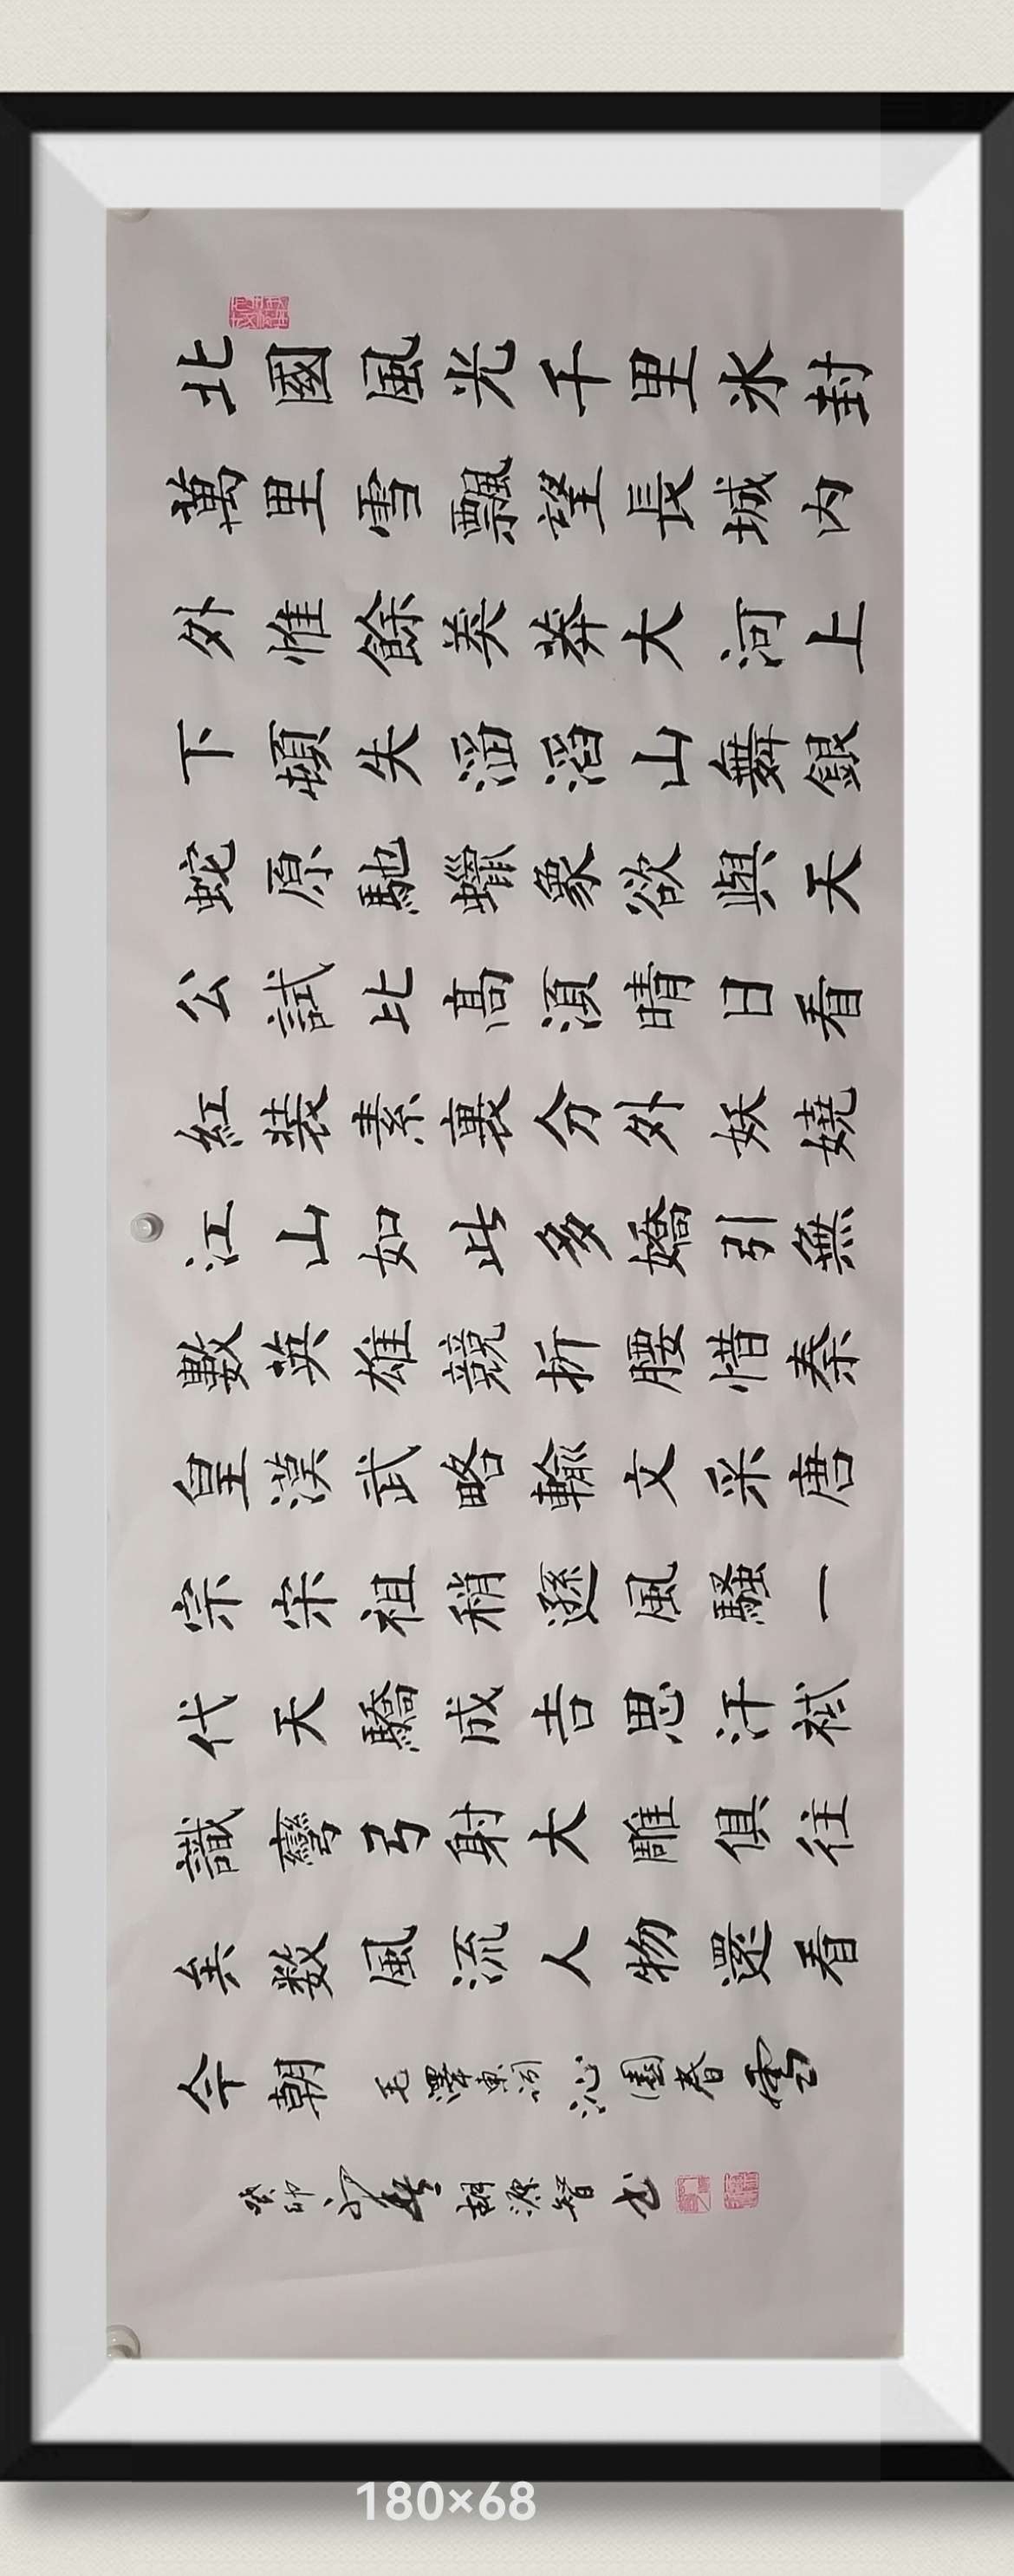 北國風光千里冰封
萬里雪飄望長城内
外惟餘莽莽大河上
下頓失滔滔山舞銀
蛇原馳蠟象欲與天
公試比高須晴日看
紅裝素裹分外妖嬈
江山如此多嬌引無
數英雄競折腰惜秦
皇漢武略輸文采唐
宗宋祖稍遜風騷一
代天驕成吉思汗祗
識彎弓射大雕俱往
矣数風流人物還看
今朝 毛澤東詞沁園春雪
癸卯 胡源智书
180×68